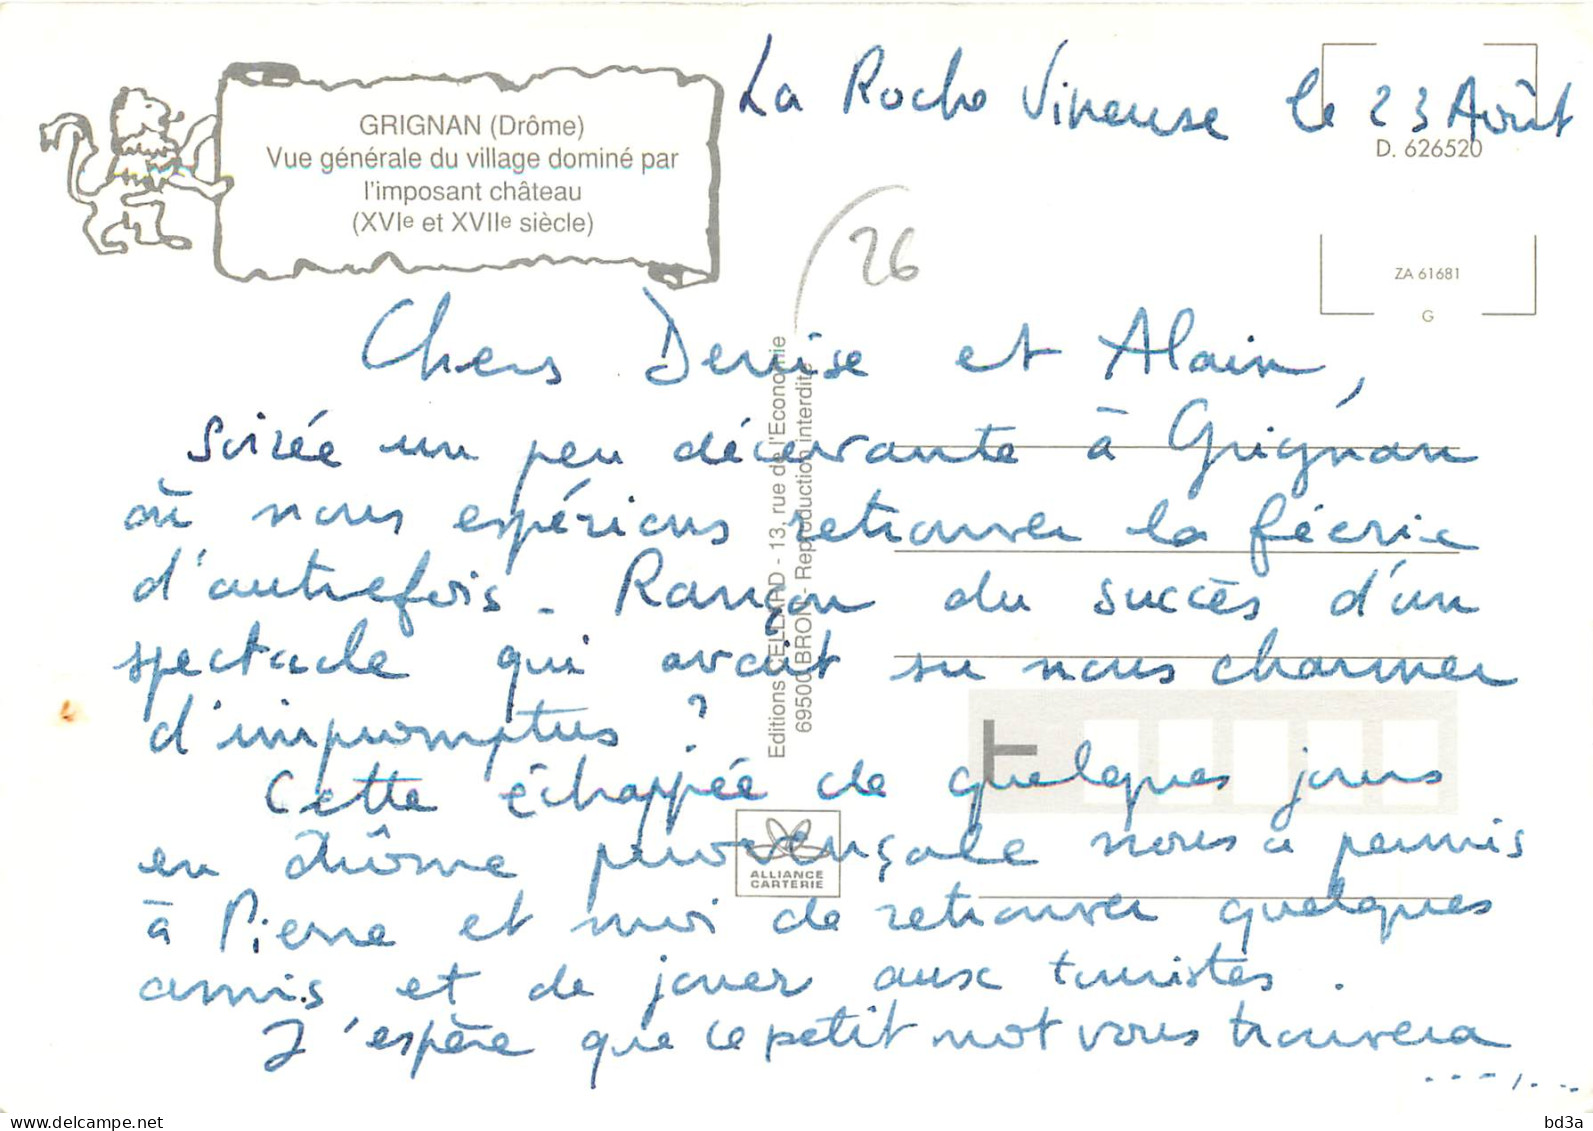 La Roche Vineuse le 23 Août
GRIGNAN (Drôme)
Vue générale du village dominé par
l'imposant château
(XVIe et XVIIe siècle)
D. 626520
26
ZA 61681
G
Chers Denise et Alain,
Soirée un peu décevante à Grignan
où nous espérions retrouver la féerie
d'autrefois. Rançon du succès d'un
spectacle qui avait su nous charmer
d'impromptus ?
Cette échappée de quelques jours
en drôme provençale nous a permis
à Pierre et moi de retrouver quelques
amis et de jouer aux touristes.
J'espère que ce petit mot vous trouvera
Editions CELLARD - 13, rue de l'Economie
69500 BRON - Reproduction interdite
ALLIANCE
CARTERIE
www.delcampe.net
bd3a